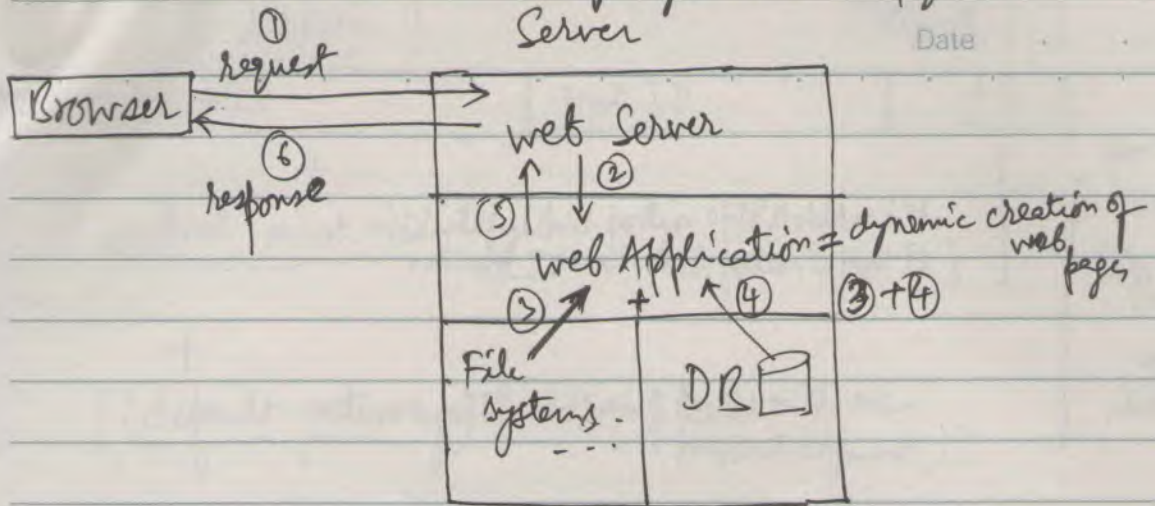 Server
Date
①
request
Browser
web Server
⑥
response
②
⑤
web Application = dynemic creation of
web
pages
③
+
④
③+④
File
systems.
DB